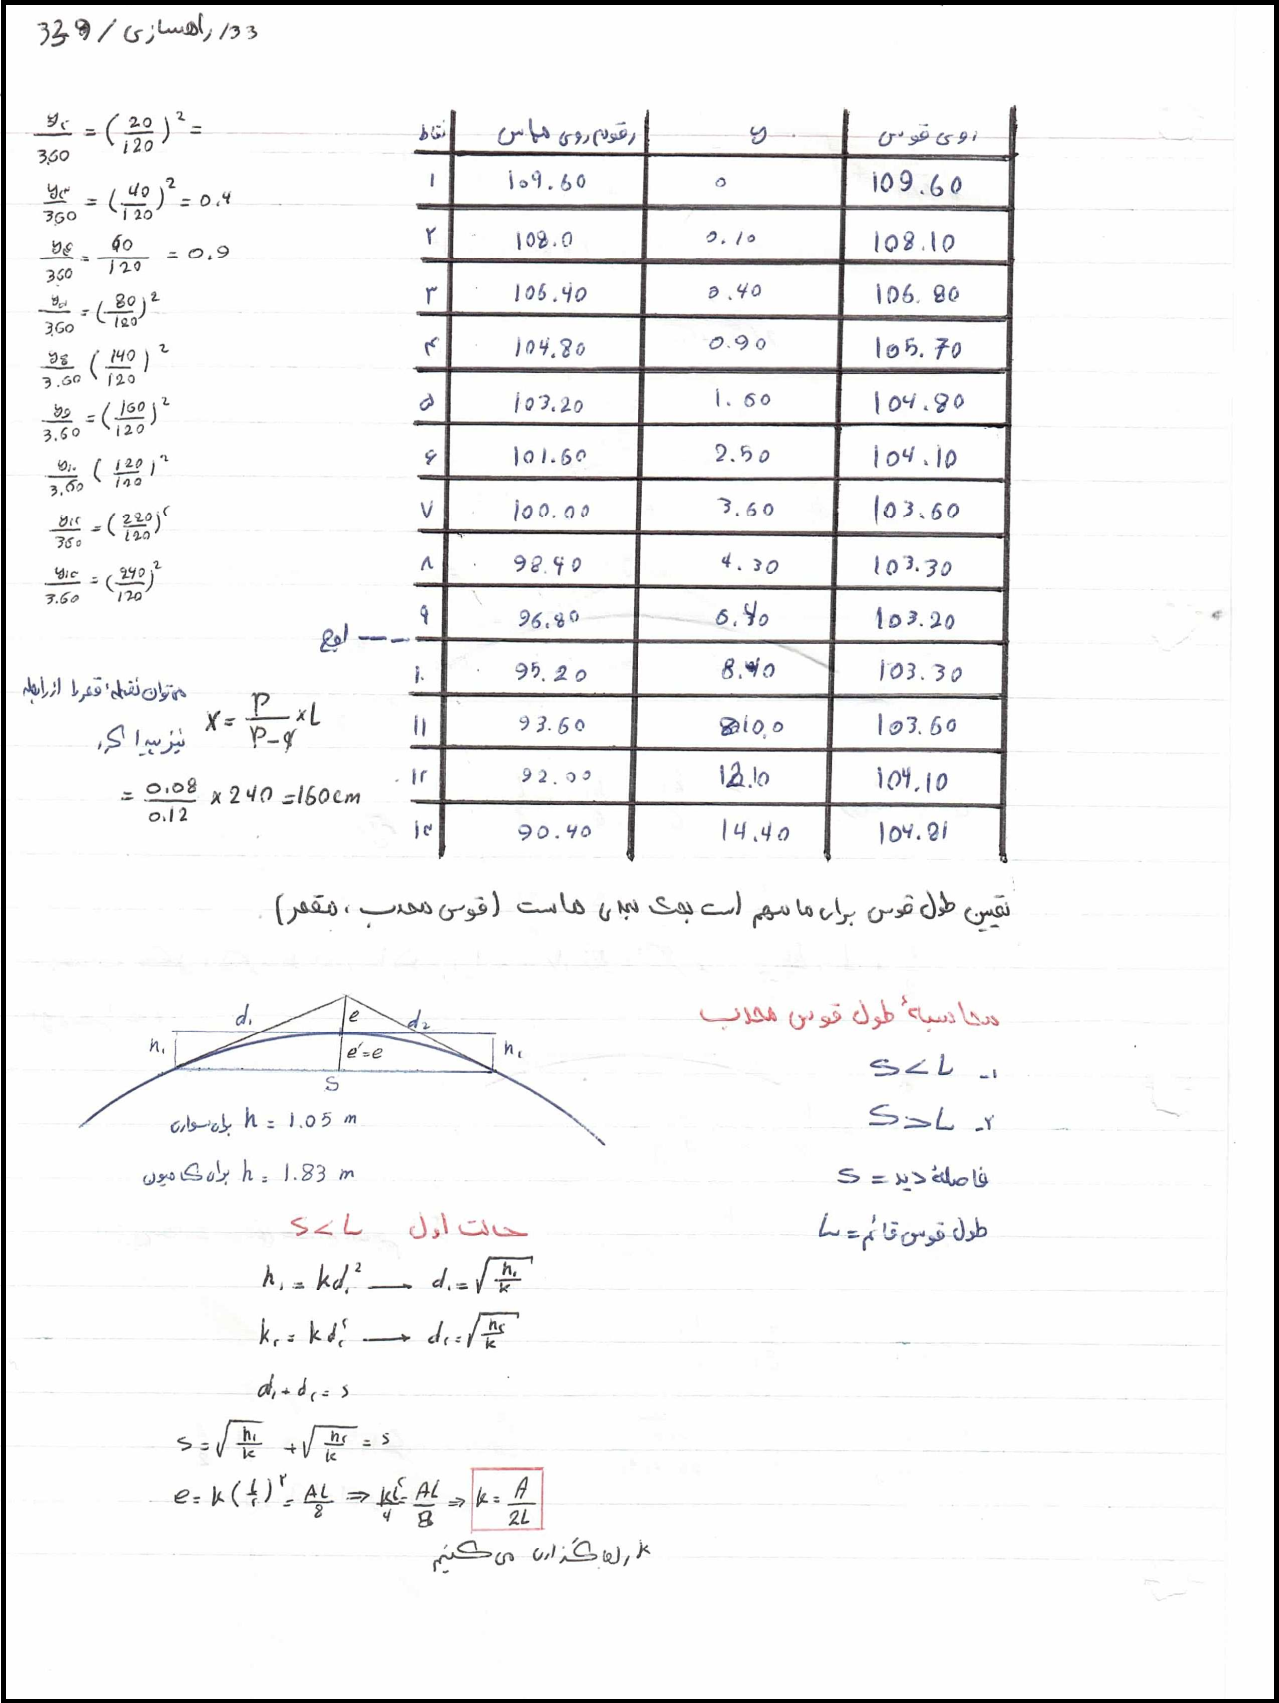 33/ راهسازی / 339
y۲/3.60 = (20/120)^2 =
y۳/3.60 = (40/120)^2 = 0.4
y۴/3.60 = 60/120 = 0.9
y۵/3.60 = (80/120)^2
y8/3.60 (140/120)^2
y9/3.60 = (160/120)^2
y۱۰/3.60 (120/120)^2
y۱۲/3.60 = (220/120)^۲
y۱۳/3.60 = (240/120)^2
نقاط | رقوم روی مماس | y | روی قوس
۱ | 109.60 | 0 | 109.60
۲ | 108.0 | 0.10 | 108.10
۳ | 106.40 | 0.40 | 106.80
۴ | 104.80 | 0.90 | 105.70
۵ | 103.20 | 1.60 | 104.80
۶ | 101.60 | 2.50 | 104.10
۷ | 100.00 | 3.60 | 103.60
۸ | 98.40 | 4.30 | 103.30
۹ | 96.80 | 6.40 | 103.20
اوج
۱۰ | 95.20 | 8.40 | 103.30
۱۱ | 93.60 | 10.0 | 103.60
۱۲ | 92.00 | 12.10 | 104.10
۱۳ | 90.40 | 14.40 | 104.81
می‌توان نقطه قعر را از رابطه
x = P/(P-q) × L
نیز پیدا کرد
= 0.08/0.12 × 240 = 160 cm
تعیین طول قوس برای ما مهم است بحث بعدی ماست (قوس محدب، مقعر)
d۱ e d2
h۱ e'=e h۲
S
برای سواری h = 1.05 m
برای کامیون h = 1.83 m
محاسبهٔ طول قوس محدب
۱- S<L
۲- S>L
فاصلهٔ دید = S
طول قوس قائم = L
حالت اول S<L
h۱ = kd۱^2 → d۱ = √(h۱/k)
k۲ = kd۲^۲ → d۲ = √(h۲/k)
d۱ + d۲ = s
s = √(h۱/k) + √(h۲/k) = s
e = k(L/۲)^۲ = AL/8 ⇒ kL^۲/4 = AL/8 ⇒ k = A/2L
k را جاگذاری می‌کنیم